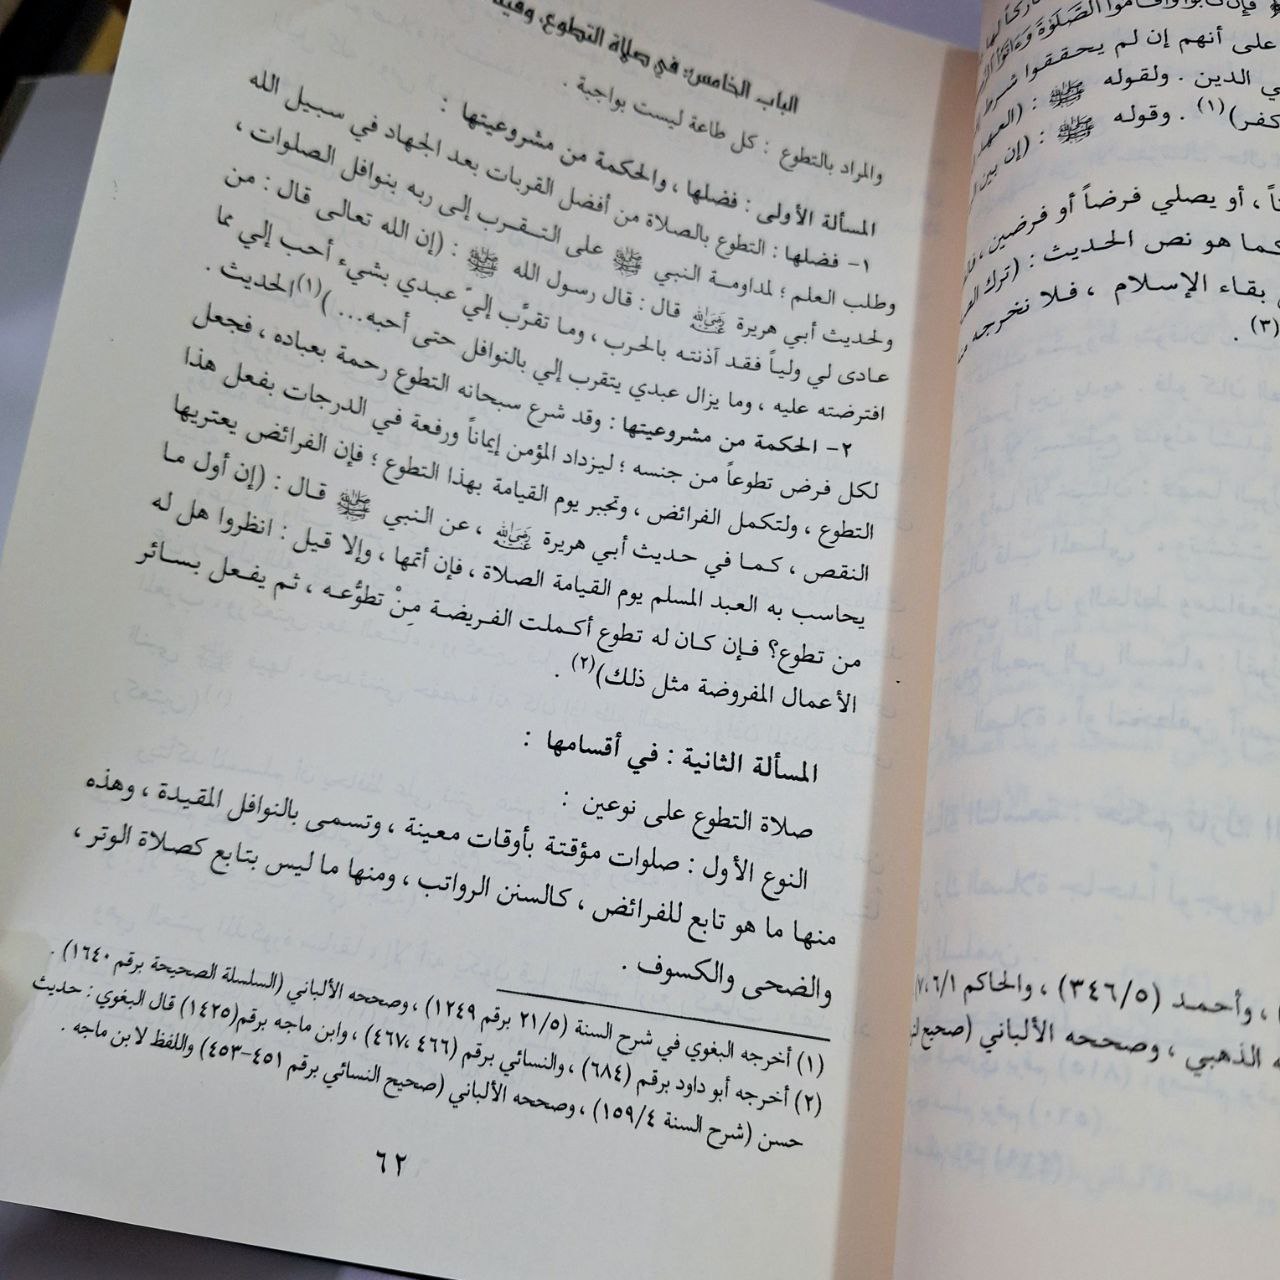 الباب الخامس: في صلاة التطوع، وفيه
والمراد بالتطوع : كل طاعة ليست بواجبة .
المسألة الأولى : فضلها ، والحكمة من مشروعيتها :
١- فضلها : التطوع بالصلاة من أفضل القربات بعد الجهاد في سبيل الله
وطلب العلم ؛ لمداومة النبي ﷺ على التقرب إلى ربه بنوافل الصلوات ،
ولحديث أبي هريرة رضي الله عنه قال : قال رسول الله ﷺ : (إن الله تعالى قال : من
عادى لي ولياً فقد آذنته بالحرب ، وما تقرَّب إليّ عبدي بشيء أحب إلي مما
افترضته عليه ، وما يزال عبدي يتقرب إلي بالنوافل حتى أحبه...)(١) الحديث .
٢- الحكمة من مشروعيتها : وقد شرع سبحانه التطوع رحمة بعباده ، فجعل
لكل فرض تطوعاً من جنسه ؛ ليزداد المؤمن إيماناً ورفعة في الدرجات بفعل هذا
التطوع ، ولتكمل الفرائض ، وتجبر يوم القيامة بهذا التطوع ؛ فإن الفرائض يعتريها
النقص ، كما في حديث أبي هريرة رضي الله عنه ، عن النبي ﷺ قال : (إن أول ما
يحاسب به العبد المسلم يوم القيامة الصلاة ، فإن أتمها ، وإلا قيل : انظروا هل له
من تطوع؟ فإن كان له تطوع أكملت الفريضة مِنْ تطوُّعه ، ثم يفعل بسائر
الأعمال المفروضة مثل ذلك)(٢) .
المسألة الثانية : في أقسامها :
صلاة التطوع على نوعين :
النوع الأول : صلوات مؤقتة بأوقات معينة ، وتسمى بالنوافل المقيدة ، وهذه
منها ما هو تابع للفرائض ، كالسنن الرواتب ، ومنها ما ليس بتابع كصلاة الوتر ،
والضحى والكسوف .
(١) أخرجه البغوي في شرح السنة (٢١/٥ برقم ١٢٤٩) ، وصححه الألباني (السلسلة الصحيحة برقم ١٦٤٠) .
(٢) أخرجه أبو داود برقم (٦٨٤) ، والنسائي برقم (٤٦٦ ،٤٦٧) ، وابن ماجه برقم(١٤٢٥) قال البغوي : حديث
حسن (شرح السنة ١٥٩/٤) ، وصححه الألباني (صحيح النسائي برقم ٤٥١-٤٥٣) واللفظ لابن ماجه .
٦٢
فإن تابوا وأقاموا الصَّلَوٰةَ وَءَاتَوُا
على أنهم إن لم يحققوا شرط
الدين . ولقوله ﷺ : (العهد
كفر)(١) . وقوله ﷺ : (إن بين
، أو يصلي فرضاً أو فرضين ،
كما هو نص الحديث : (ترك
بقاء الإسلام ، فلا نخرجه
(٣) .
، وأحمد (٣٤٦/٥) ، والحاكم ٧،٦/١
الذهبي ، وصححه الألباني (صحيح